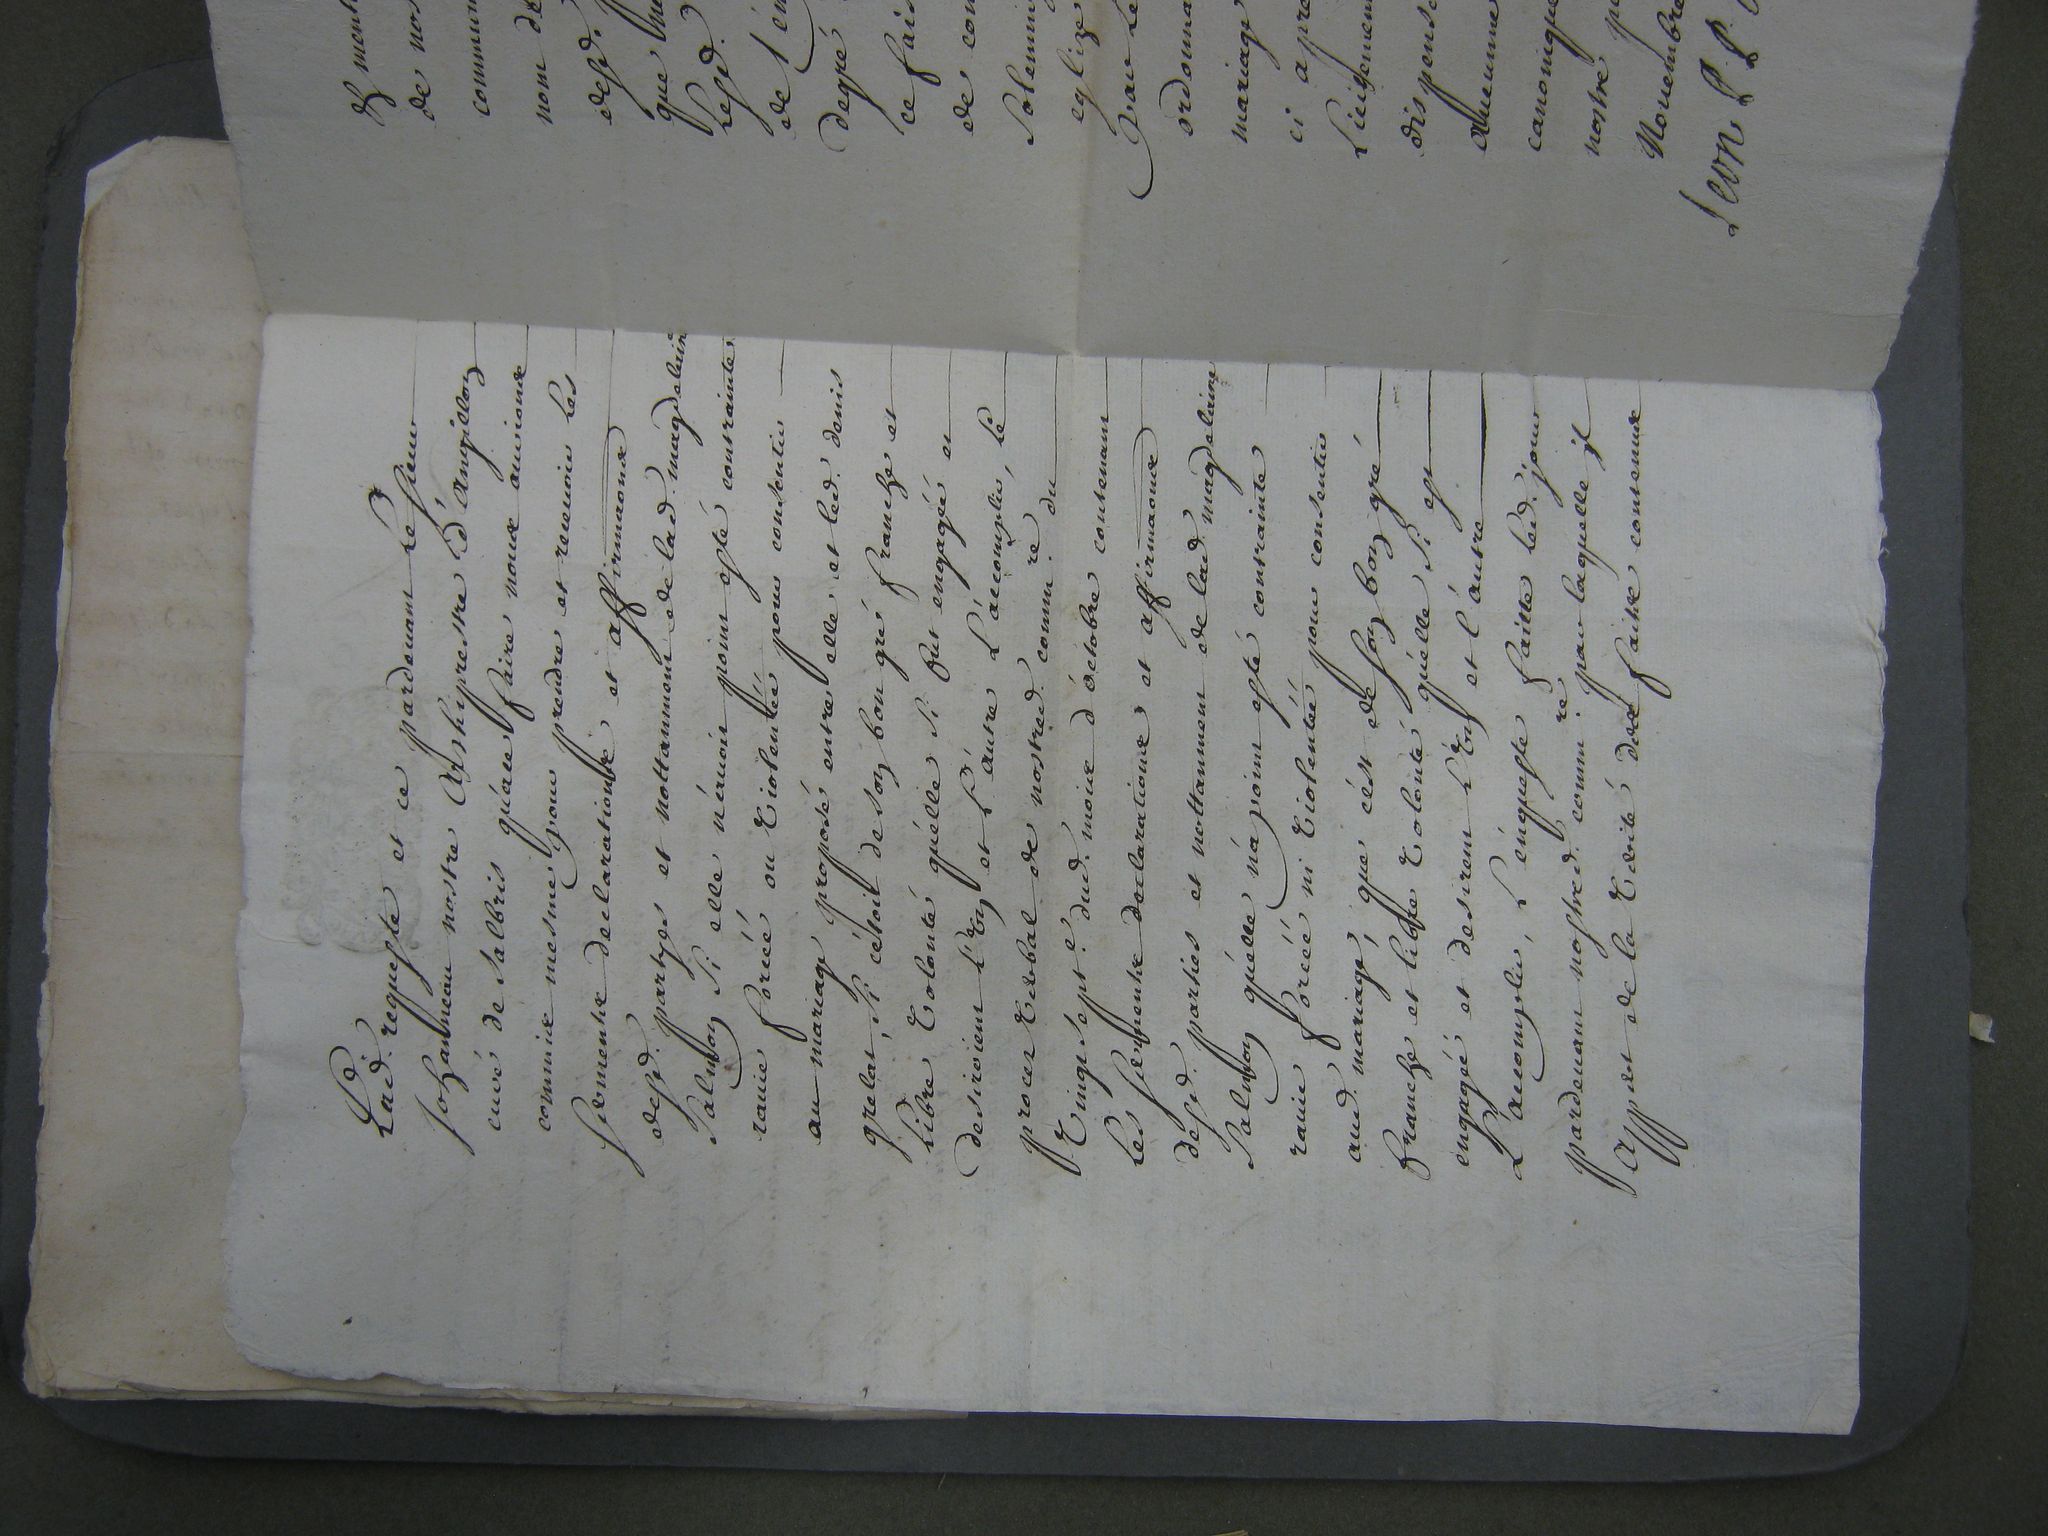 Lad. requeste et ce pardevant le sieur
Johanneau nostre Archyprestre d'Angillon
curé de salbris qu'avec faire nous aurions
commis mesme pour prendre et recevoir les
sermentz declarationz et affirmaons
desd. partyes et nottamment de lad. magdelaine
Salmon si elle n'éttoit point esté contrainte
ravie forcéé ou violentéé pour consentir
au mariage proposé entre elle et led. denis
grelat, si c'éstoit de son bon gré franche et
libre volonté qu'elle si fut engagéé et
desiroient l'un et l'autre l'accomplir, le
procez verbal de nostred. comm.re du
vingt sept.e dud. mois d'octobre contenant
les sermentz declarations et affirmaons
desd. parties et nottamment de lad. magdelaine
Salmon qu'elle n'a point esté contrainte
ravie forcéé ni violentéé pour consentir
aud. mariage, que c'ést de son bon gré
franche et libre volonté qu'elle si est
engagéé et desirent l'un et l'autre
l'accomplir, L'énqueste faitte led. jour
pardevant nostred. comm.re par laquelle il
Appert de la verité des faits contenus
et ment
de nos
commun
nom de
desd.
que
lesd.
de l'én
degré
ce fais
de con
solemni
eglize
Par le
ordonna
mariage
ci apre
dispense
canonique
nostre
Novembre
Leon P. P.